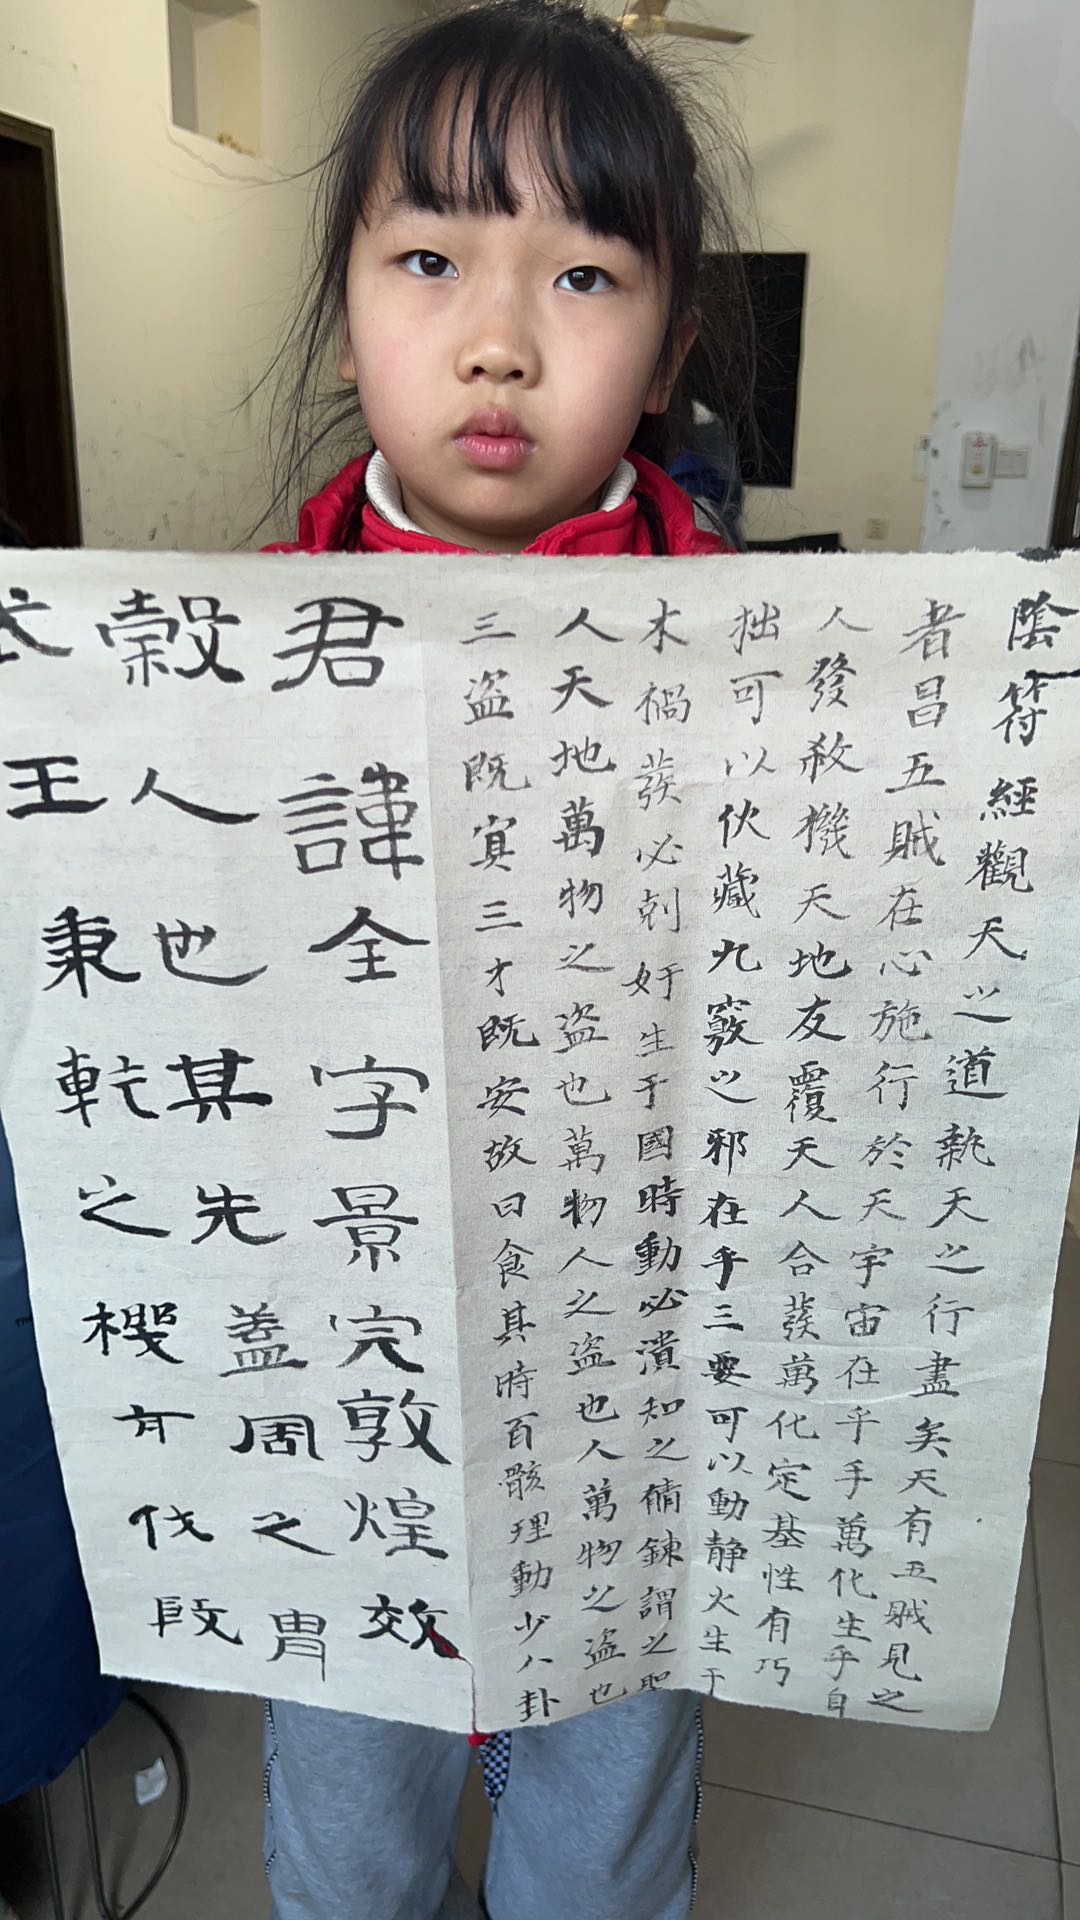 陰符經觀天之道執天之行盡矣天有五賊見之
者昌五賊在心施行於天宇宙在乎手萬化生乎自
人發殺機天地友覆天人合發萬化定基性有巧
拙可以伏藏九竅之邪在乎三要可以動靜火生于
木禍發必剋奸生于國時動必潰知之脩鍊謂之聖
人天地萬物之盜也萬物人之盜也人萬物之盜也
三盜既冥三才既安故曰食其時百骸理動少八卦
君諱全字景完敦煌效
穀人也其先蓋周之胄
武王秉乾之機有伐殷